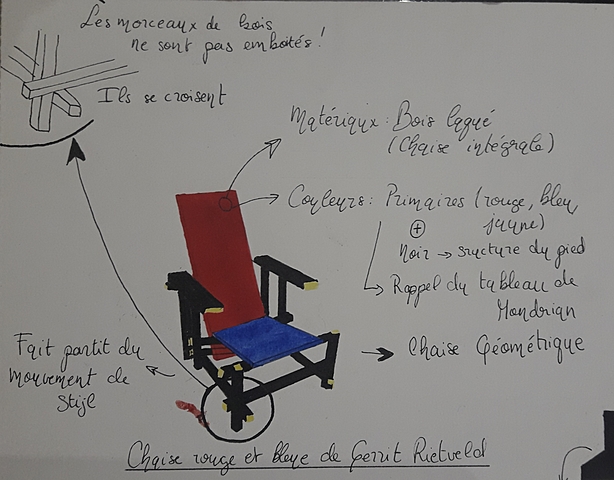 Les morceaux de bois
ne sont pas emboités !
Ils se croisent
Matériaux : Bois laqué
(Chaise intégrale)
Couleurs : Primaires (rouge, bleu,
jaune)
+
Noir → sructure du pied
Rappel du tableau de
Mondrian
Chaise Géométrique
Fait partit du
mouvement de
Stijl
Chaise rouge et bleue de Gerrit Rietveld